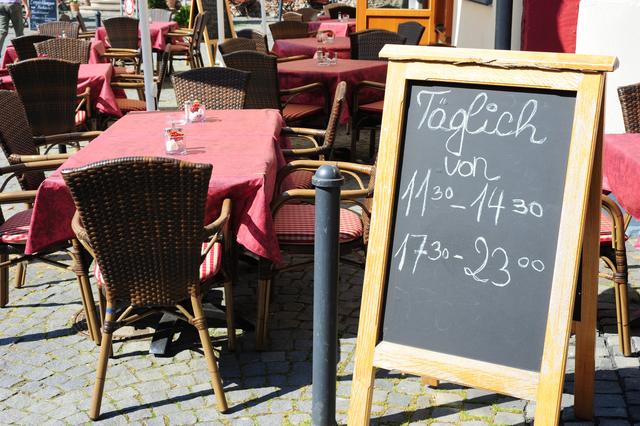 Täglich
von
11³⁰-14³⁰
17³⁰-23⁰⁰